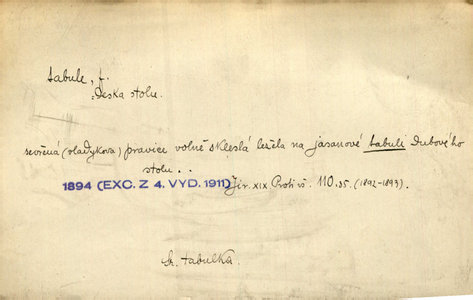 tabule, f.
Deska stolu.
sevřená (vladykova) pravice volně skleslá ležela na jasanové tabuli dubového
stolu..
1894 (EXC. Z 4. VYD. 1911) Jir. XIX Proti vš. 110.35. (1892-1893).
Sr. tabulka.